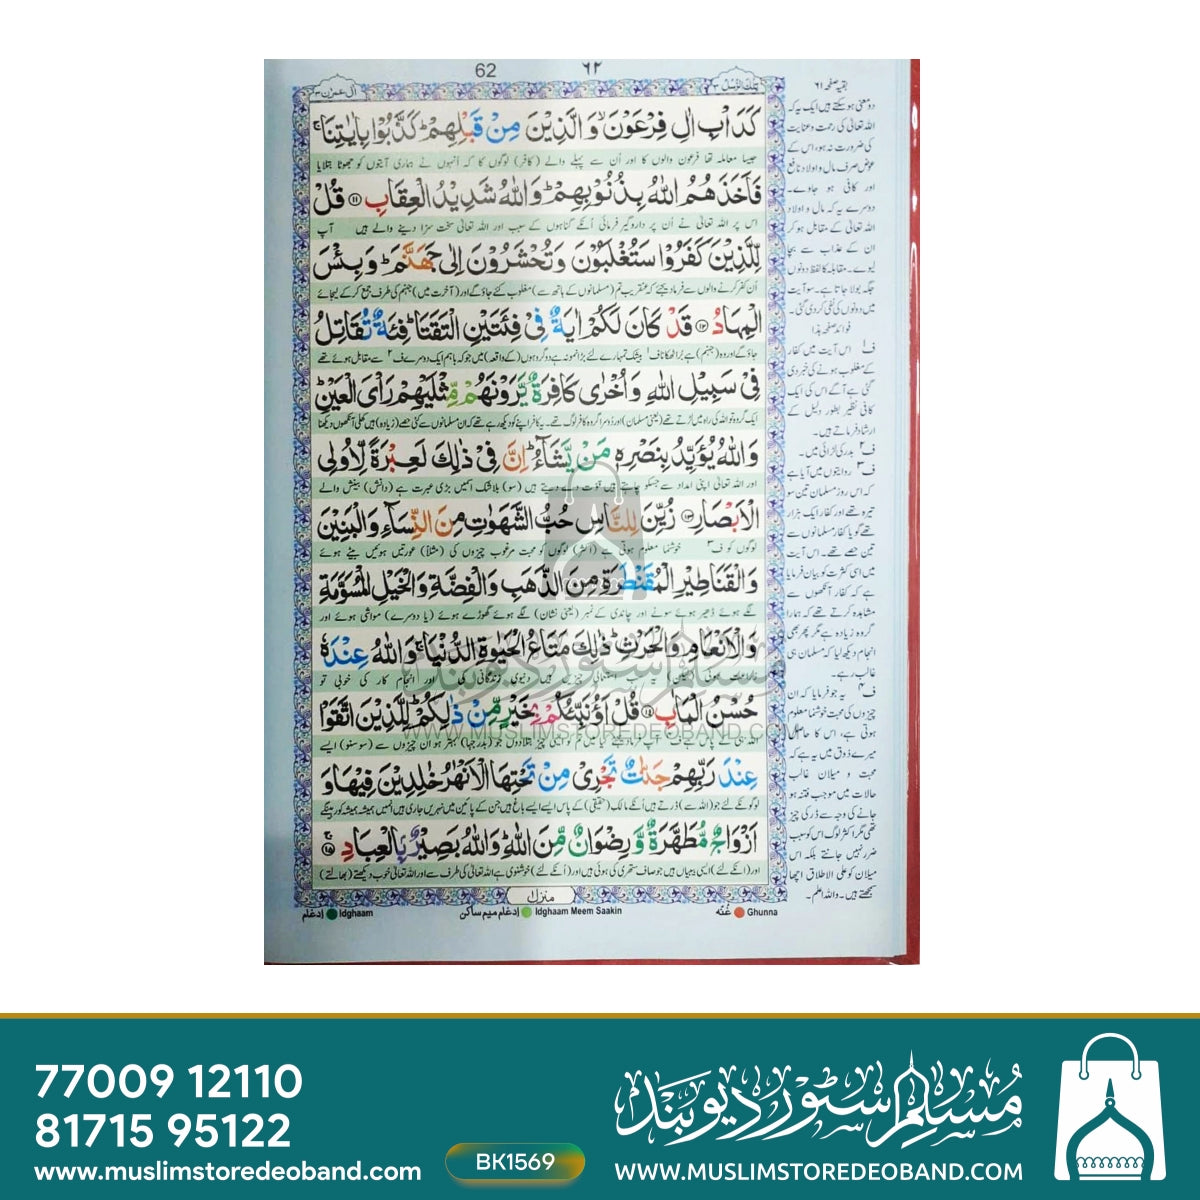 62
٦٢
تلك الرسل ٣
اٰل عمرٰن ٣
بقیہ صفحہ ٦١
كَدَاْبِ اٰلِ فِرْعَوْنَ ۙ وَالَّذِيْنَ مِنْ قَبْلِهِمْ ؕ كَذَّبُوْا بِاٰيٰتِنَا ۚ
جیسا معاملہ تھا فرعون والوں کا اور اُن سے پہلے والے (کافر) لوگوں کا کہ اُنہوں نے ہماری آیتوں کو جھوٹا بتلایا
فَاَخَذَهُمُ اللّٰهُ بِذُنُوْبِهِمْ ؕ وَاللّٰهُ شَدِيْدُ الْعِقَابِ ﴿۱۱﴾ قُلْ
اس پر اللہ تعالیٰ نے اُن پر داروگیر فرمائی اُنکے گناہوں کے سبب اور اللہ تعالیٰ سخت سزا دینے والے ہیں آپ
لِّلَّذِيْنَ كَفَرُوْا سَتُغْلَبُوْنَ وَتُحْشَرُوْنَ اِلٰى جَهَنَّمَ ؕ وَبِئْسَ
اُن کفر کرنے والوں سے فرما دیجئے کہ عنقریب تم (مسلمانوں کے ہاتھ سے) مغلوب کئے جاؤ گے اور (آخرت میں) جہنم کی طرف جمع کر کے لیجائے
الْمِهَادُ ﴿۱۲﴾ قَدْ كَانَ لَكُمْ اٰيَةٌ فِىْ فِئَتَيْنِ الْتَقَتَا ؕ فِئَةٌ تُقَاتِلُ
جاؤ گے اور وہ (جہنم) ہے بُرا ٹھکانا ف۱ بیشک تمہارے لئے بڑا نمونہ ہے دو گروہوں (کے واقعہ) میں جو کہ باہم ایک دوسرے ف۲ سے مقابل ہوئے تھے
فِىْ سَبِيْلِ اللّٰهِ وَاُخْرٰى كَافِرَةٌ يَّرَوْنَهُمْ مِّثْلَيْهِمْ رَاْىَ الْعَيْنِ ؕ
ایک گروہ تو اللہ کی راہ میں لڑتے تھے (یعنی مسلمان) اور دُوسرا گروہ کافر لوگ تھے۔ یہ کافر اپنے کو دیکھ رہے تھے کہ ان مسلمانوں سے کئی حصے (زیادہ) ہیں کھلی آنکھوں دیکھنا
وَاللّٰهُ يُؤَيِّدُ بِنَصْرِهٖ مَنْ يَّشَآءُ ؕ اِنَّ فِىْ ذٰلِكَ لَعِبْرَةً لِّاُولِى
اور اللہ تعالیٰ اپنی امداد سے جسکو چاہتے ہیں قوّت دے دیتے ہیں (سو) بلاشک اسمیں بڑی عبرت ہے (دانش) بینش والے
الْاَبْصَارِ ﴿۱۳﴾ زُيِّنَ لِلنَّاسِ حُبُّ الشَّهَوٰتِ مِنَ النِّسَآءِ وَالْبَنِيْنَ
لوگوں کو ف۳ خوشنما معلوم ہوتی ہے (اکثر) لوگوں کو محبت مرغوب چیزوں کی (مثلاً) عورتیں ہوئیں بیٹے ہوئے
وَالْقَنَاطِيْرِ الْمُقَنْطَرَةِ مِنَ الذَّهَبِ وَالْفِضَّةِ وَالْخَيْلِ الْمُسَوَّمَةِ
لگے ہوئے ڈھیر ہوئے سونے اور چاندی کے نمبر (یعنی نشان) لگے ہوئے گھوڑے ہوئے (یا دوسرے) مواشی ہوئے اور
وَالْاَنْعَامِ وَالْحَرْثِ ؕ ذٰلِكَ مَتَاعُ الْحَيٰوةِ الدُّنْيَا ۚ وَاللّٰهُ عِنْدَهٗ
زراعت ہوئی (لیکن) یہ سب استعمالی چیزیں ہیں دنیوی زندگانی کی اور انجام کار کی خوبی تو
حُسْنُ الْمَاٰبِ ﴿۱۴﴾ قُلْ اَؤُنَبِّئُكُمْ بِخَيْرٍ مِّنْ ذٰلِكُمْ ؕ لِلَّذِيْنَ اتَّقَوْا
اللہ ہی کے پاس ہے ف۴ آپ فرما دیجئے کیا میں تم کو ایسی چیز بتلا دوں جو (بدرجہا) بہتر ہو ان چیزوں سے (سو سنو) ایسے
عِنْدَ رَبِّهِمْ جَنّٰتٌ تَجْرِىْ مِنْ تَحْتِهَا الْاَنْهٰرُ خٰلِدِيْنَ فِيْهَا وَ
لوگوں کے لئے جو (اللہ سے) ڈرتے ہیں اُنکے مالک (حقیقی) کے پاس ایسے ایسے باغ ہیں جن کے پائین میں نہریں جاری ہیں اُنمیں ہمیشہ ہمیشہ کو رہینگے
اَزْوَاجٌ مُّطَهَّرَةٌ وَّرِضْوَانٌ مِّنَ اللّٰهِ ؕ وَاللّٰهُ بَصِيْرٌۢ بِالْعِبَادِ ﴿۱۵﴾
اور (اُنکے لئے) ایسی بیبیاں ہیں جو صاف ستھری کی ہوئی ہیں اور (اُنکے لئے) خوشنودی ہے اللہ تعالیٰ کی طرف سے اور اللہ تعالیٰ خوب دیکھتے (بھالتے)
دو معنی ہو سکتے ہیں ایک یہ کہ
اللہ تعالیٰ کی رحمت و عنایت
کی ضرورت نہ ہو، اس کے
عوض صرف مال و اولاد نافع
اور کافی ہو جاوے۔
دوسرے یہ کہ مال و اولاد
اللہ تعالیٰ کے مقابل ہو کر
ان کے عذاب سے بچا
لیوے۔ مقابلہ کا لفظ دونوں
جگہ بولا جاتا ہے۔ سو آیت
میں دونوں کی نفی کر دی گئی۔
فوائد صفحہ ہٰذا
ف۱ اس آیت میں کفار
کے مغلوب ہونے کی خبر دی
گئی ہے آگے اس کی ایک
کافی نظیر بطور دلیل کے
ارشاد فرماتے ہیں۔
ف۲ بدر کی لڑائی میں۔
ف۳ روایتوں میں آیا ہے
کہ اس روز مسلمان تین سو
تیرہ تھے اور کفار ایک ہزار
تھے گویا کفار مسلمانوں سے
تین حصے تھے۔ اس آیت
میں اسی کثرت کو بیان فرمایا
ہے کہ کفار آنکھوں سے
مشاہدہ کرتے تھے کہ ہمارا
گروہ زیادہ ہے مگر پھر بھی
انجام دیکھ لیا کہ مسلمان ہی
غالب رہے۔
ف۴ یہ جو فرمایا کہ ان
چیزوں کی محبت خوشنما معلوم
ہوتی ہے، اس کا حاصل
میرے ذوق میں یہ ہے کہ
محبت و میلان غالب
حالات میں موجب فتنہ ہو
جانے کی وجہ سے ڈر کی چیز
تھی مگر اکثر لوگ اس کو سبب
ضرر نہیں جانتے بلکہ اس
میلان کو علی الاطلاق اچھا
سمجھتے ہیں۔ واللہ اعلم۔
منزل
ادغام Idghaam
ادغام میم ساکن Idghaam Meem Saakin
غُنّه Ghunna
مسلم سٹور دیوبند
WWW.MUSLIMSTOREDEOBAND.COM
77009 12110
81715 95122
www.muslimstoredeoband.com
BK1569
مسلم سٹور دیوبند
WWW.MUSLIMSTOREDEOBAND.COM